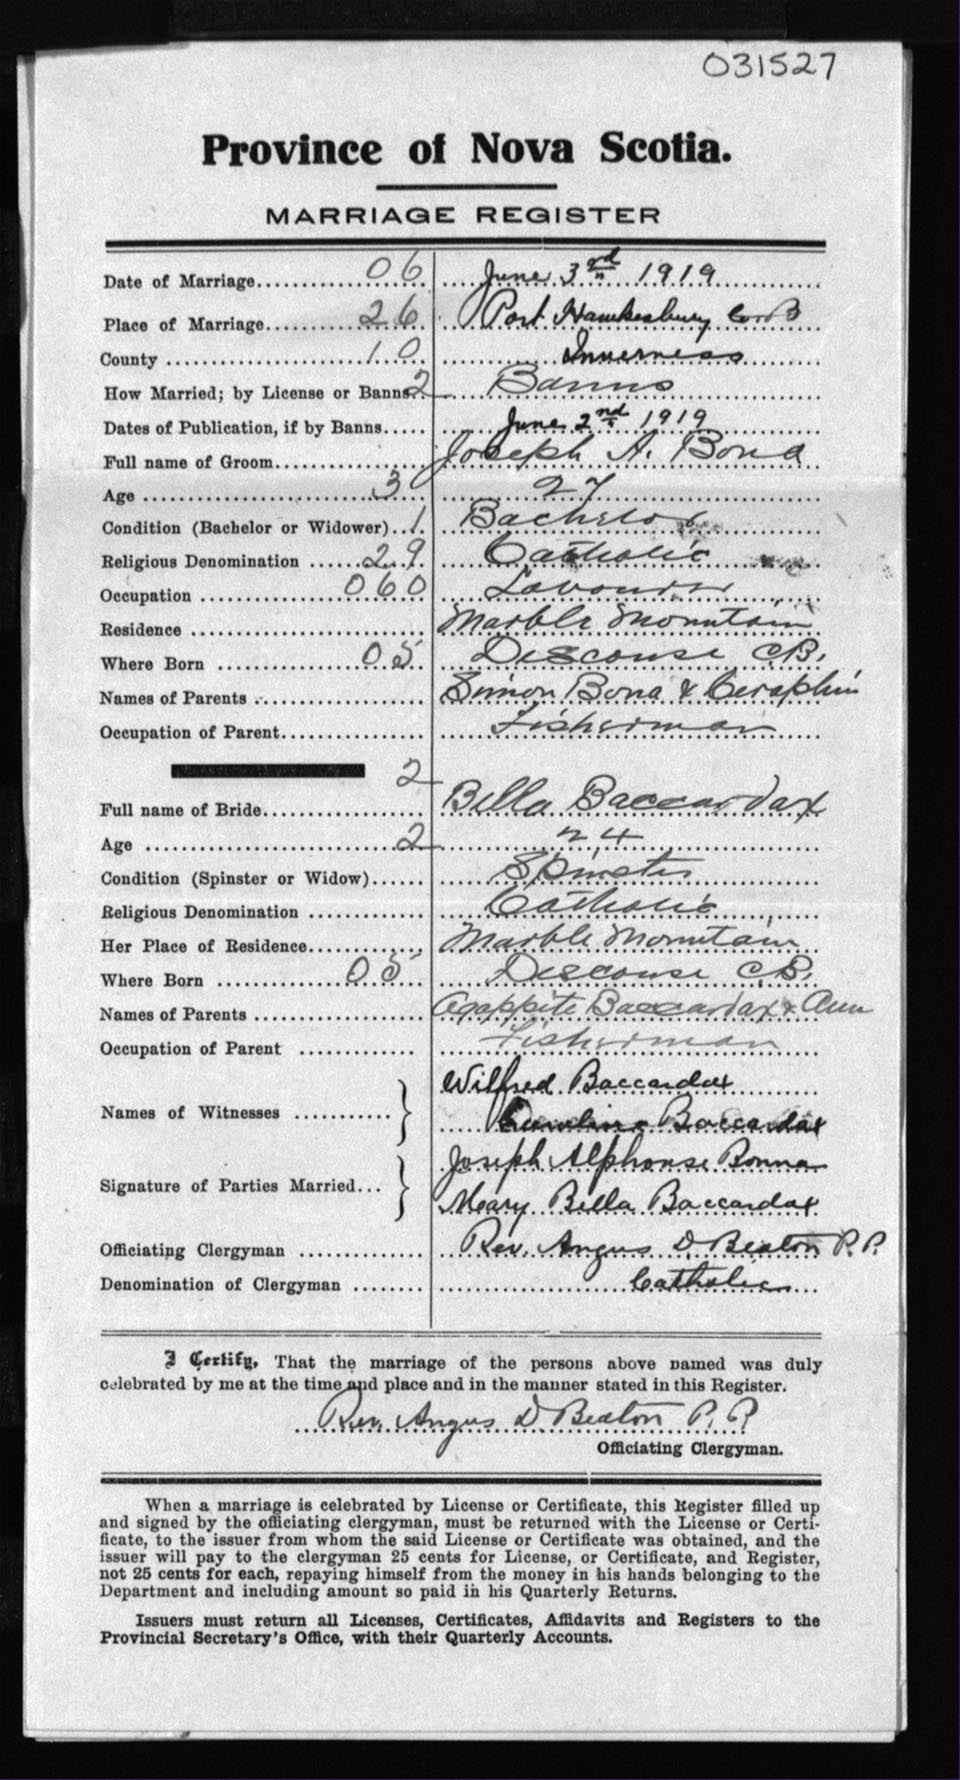 031527
Province of Nova Scotia.
MARRIAGE REGISTER
Date of Marriage 06 June 3rd 1919
Place of Marriage 26 Port Hawkesbury C.B
County 10 Inverness
How Married; by License or Banns 2 Banns
Dates of Publication, if by Banns June 2nd 1919
Full name of Groom Joseph A. Bona
Age 3 27
Condition (Bachelor or Widower) 1 Bachelor
Religious Denomination 29 Catholic
Occupation 060 Labourer
Residence Marble Mountain
Where Born 05 Descouse C.B.
Names of Parents Simon Bona & Ceraphin
Occupation of Parent Fisherman
2
Full name of Bride Bella Baccardax
Age 2 24
Condition (Spinster or Widow) Spinster
Religious Denomination Catholic
Her Place of Residence Marble Mountain
Where Born 05 Descouse C.B.
Names of Parents Agappite Baccardax & Ann
Occupation of Parent Fisherman
Wilfred Baccardax
Names of Witnesses
Baccardax
Joseph Alphonse Bonna
Signature of Parties Married...
Mary Bella Baccardax
Officiating Clergyman Rev. Angus D. Beaton P.P.
Denomination of Clergyman Catholic
I Certify, That the marriage of the persons above named was duly
celebrated by me at the time and place and in the manner stated in this Register.
Rev. Angus D Beaton P.P.
Officiating Clergyman.
When a marriage is celebrated by License or Certificate, this Register filled up
and signed by the officiating clergyman, must be returned with the License or Certi-
ficate, to the issuer from whom the said License or Certificate was obtained, and the
issuer will pay to the clergyman 25 cents for License, or Certificate, and Register,
not 25 cents for each, repaying himself from the money in his hands belonging to the
Department and including amount so paid in his Quarterly Returns.
Issuers must return all Licenses, Certificates, Affidavits and Registers to the
Provincial Secretary's Office, with their Quarterly Accounts.